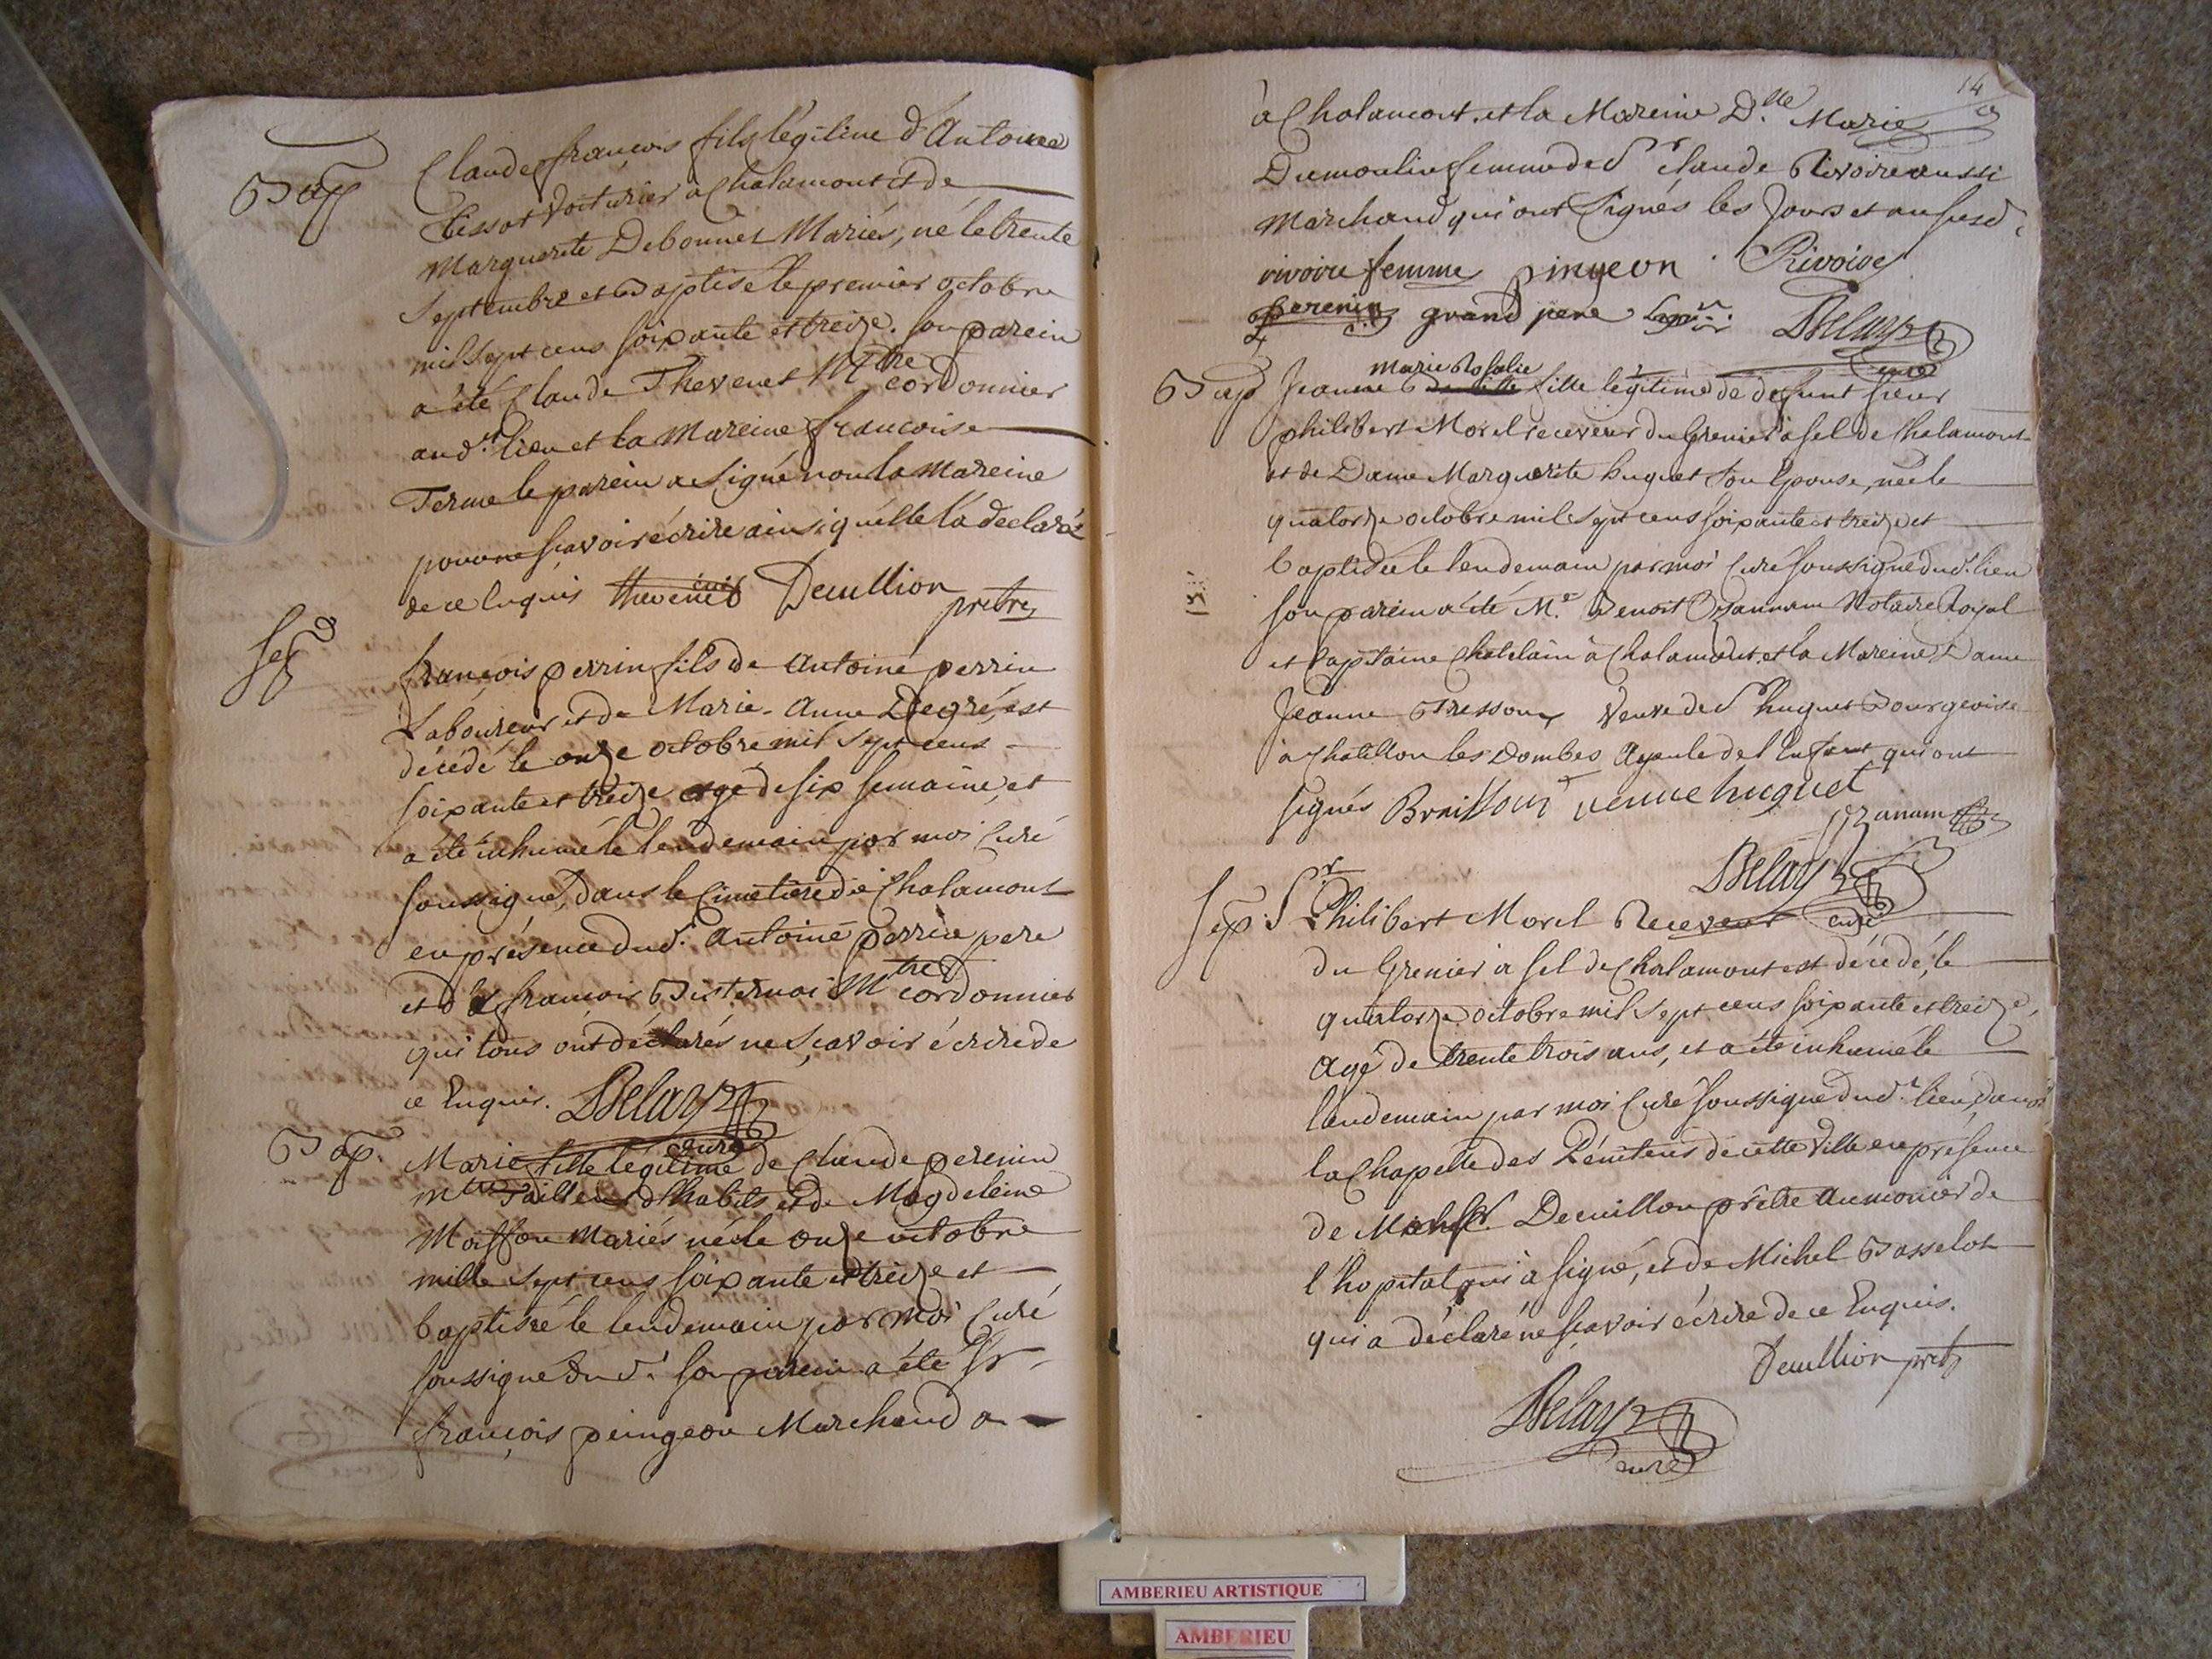 Bap
Claude françois fils légitime d'Antoine
Tissot Voiturier à Chalamont et de
Marguerite Debonnet Mariés, né le trente
Septembre et Baptisé le premier octobre
mil sept cens soixante et treize. son parein
a été Claude Thevenet Mtre cordonnier
aud.t lieu et la Mareine françoise
Terme le parein a Signé non la Mareine
pour ne sçavoir écrire ainsi qu'elle la declaré
de ce Enquis thevenet Decullion
pretre
Sep
françois perrin fils de Antoine perrin
Laboureur et de Marie-Anne Degré, est
décédé le onze octobre mil sept cens
soixante et treize agé de six semaine, et
a été inhumé le lendemain par moi Curé
soussigné, dans le Cimetière de Chalamont
en présence dud.t Antoine perrin pere
et de françois Bisternoi Mtre cordonnier
qui tous ont déclarés ne sçavoir écrire de
ce Enquis. Delay
curé
Bap.
Marie fille légitime de Claude perenin
mtre Tailleur d'habits et de Magdeleine
Moisson Mariés née le onze octobre
mille sept cens soixante et treize et
baptisée le lendemain par moi Curé
soussigné dud.t son parein a été Sr
françois peingeon Marchand a
14
à Chalamont. et la Mareine D.lle Marie
Dumoulin femme de Sr claude Rivoire aussi
Marchand qui ont Signés les Jours et an susd.
rivoire femme pingeon Rivoire
perenin grand pere
Delay
curé
Bap
Marie Rosalie
Jeanne fille légitime de defunt sieur
philibert Morel receveur du Grenier à sel de Chalamont
et de Dame Marguerite huguet son Epouse, née le
quatorze octobre mil sept cens soixante et treize et
baptisée le lendemain par moi Curé soussigné dud.t lieu
son parein a été M.e Benoit Ozannam Notaire Royal
et Capitaine Chatelain à Chalamont, et la Mareine Dame
Jeanne Bresson Veuve de Sr huguet Bourgeoise
à Chatillon les Dombes Ayeule de l'Enfant qui ont
signés veuve huguet
ozanam
Delay
curé
Sep.
Sr. Philibert Morel Receveur
du Grenier à sel de Chalamont est décédé, le
quatorze octobre mil sept cens soixante et treize,
agé de trente trois ans, et a été inhumé le
lendemain par moi Curé soussigné dud.t lieu, dans
la Chapelle des Pénitens de cette Ville en présence
de Decuillon prêtre aumonier de
l'hopital qui à signé, et de Michel Basselot
qui a déclaré ne sçavoir écrire de ce Enquis.
Decullion pretre
Delay
curé
AMBERIEU ARTISTIQUE
AMBERIEU